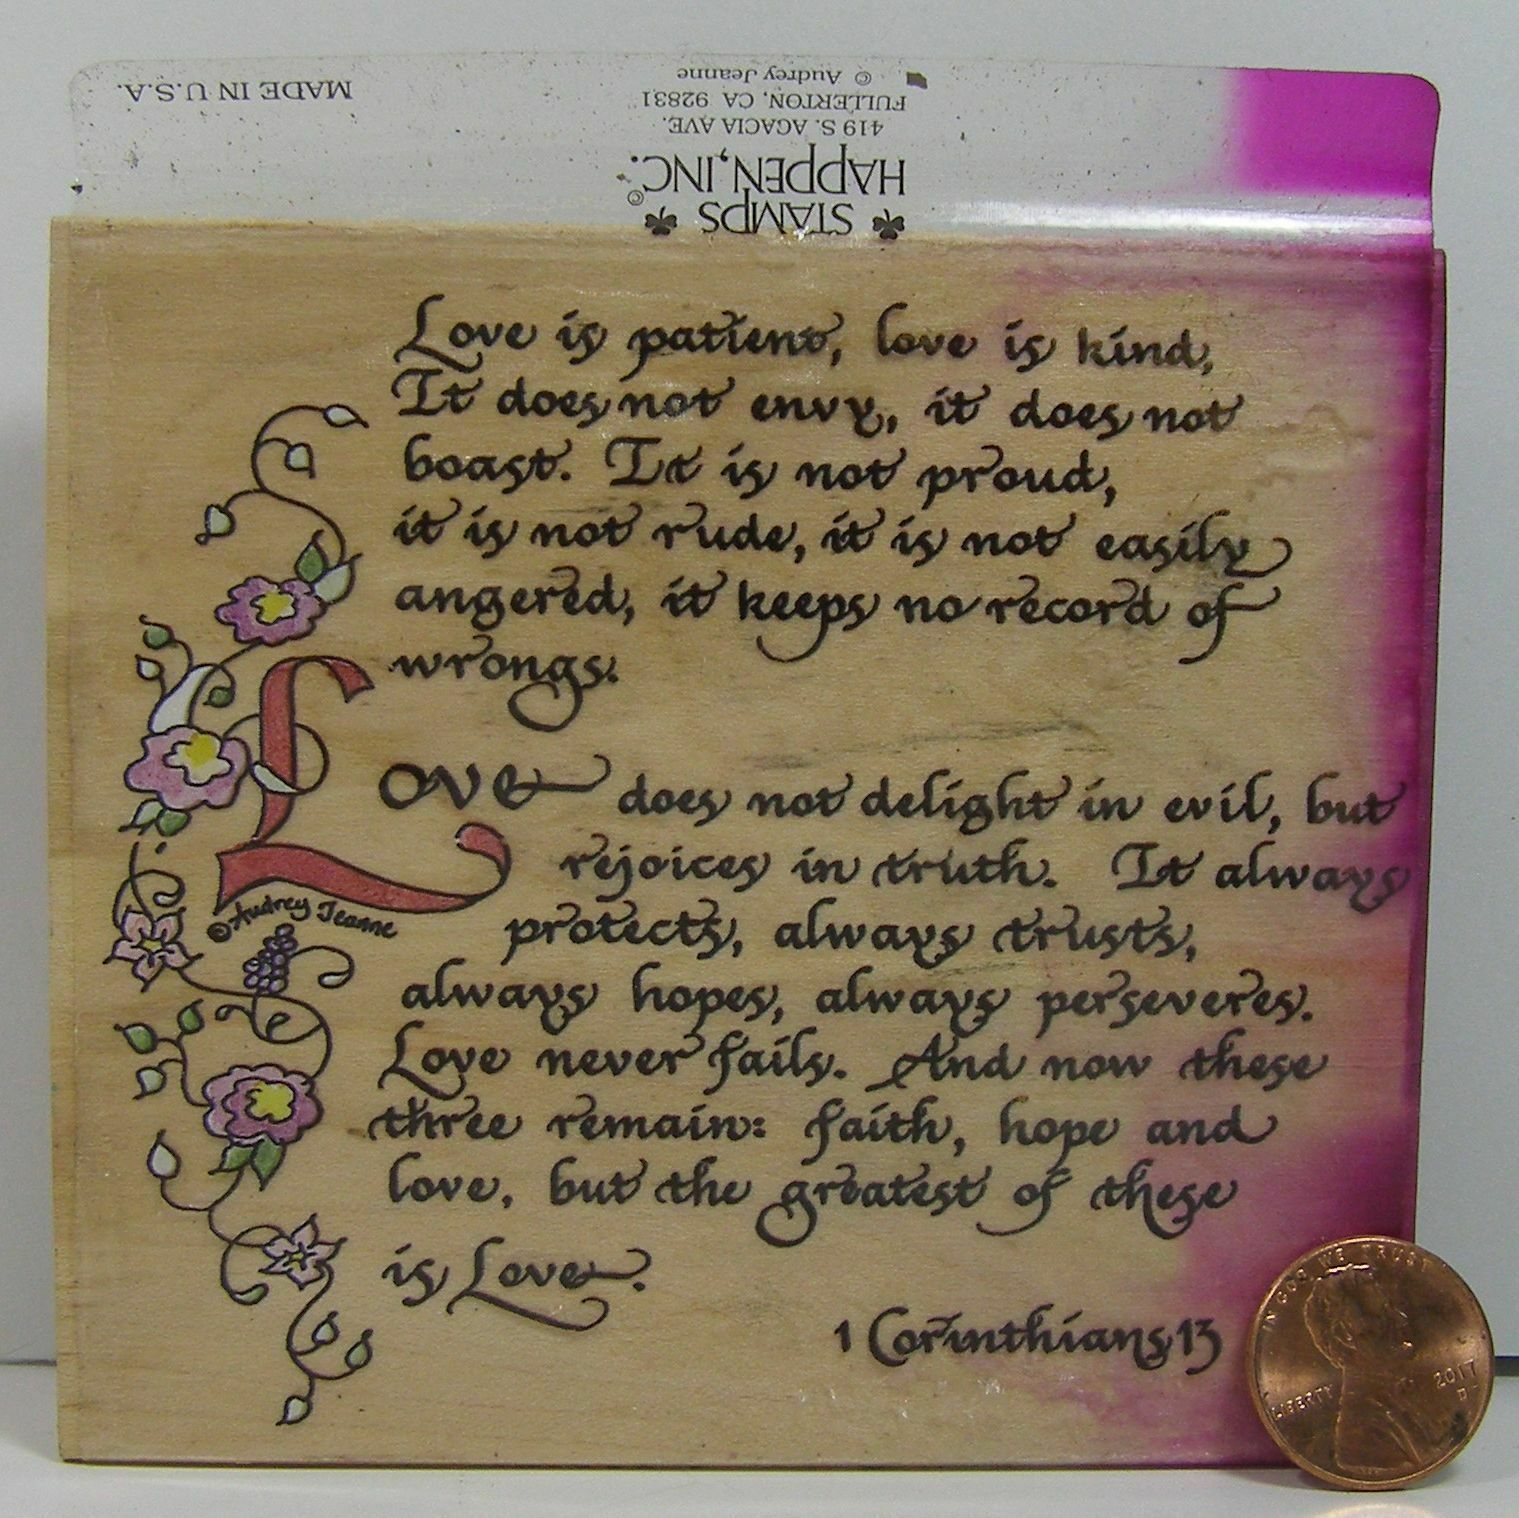 MADE IN U.S.A.
STAMPS
HAPPEN, INC.©
419 S. ACACIA AVE.
FULLERTON, CA 92831
© Audrey Jeanne
Love is patient, love is kind,
It does not envy, it does not
boast. It is not proud,
it is not rude, it is not easily
angered, it keeps no record of
wrongs.
Love does not delight in evil, but
rejoices in truth. It always
protects, always trusts,
always hopes, always perseveres.
Love never fails. And now these
three remain: faith, hope and
love, but the greatest of these
is Love.
1 Corinthians 13
©Audrey Jeanne
IN GOD WE TRUST
LIBERTY
2017
D